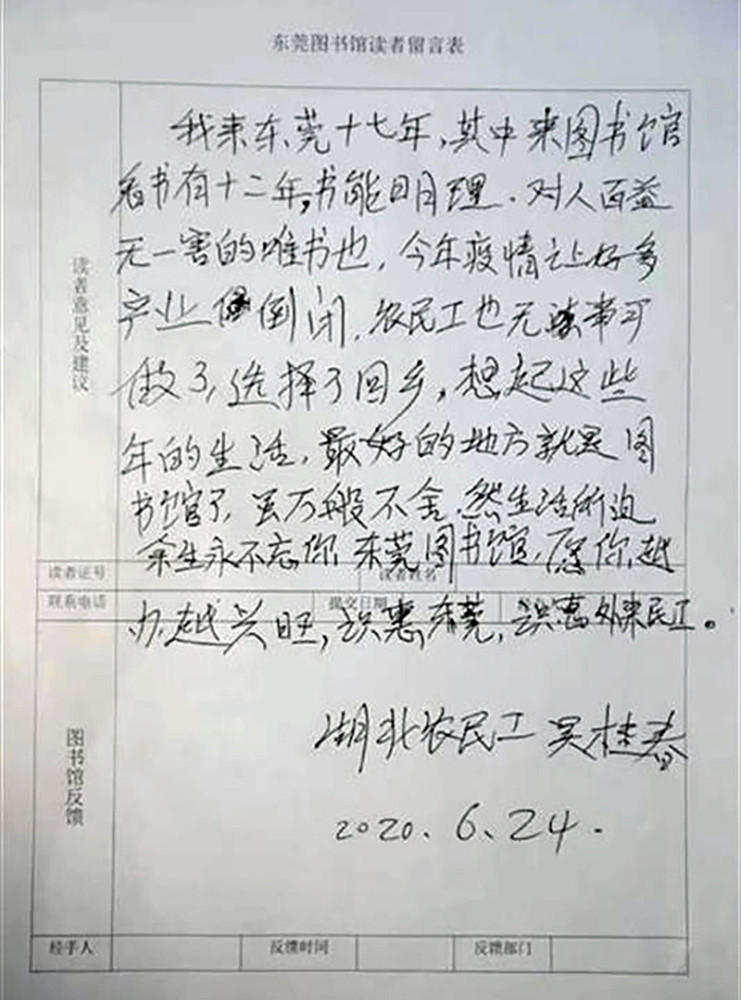 东莞图书馆读者留言表
读者意见及建议
我来东莞十七年,其中来图书馆
看书有十二年,书能明理.对人百益
无一害的唯书也,今年疫情让好多
产业倒闭,农民工也无事可
做了,选择了回乡,想起这些
年的生活,最好的地方就是图
书馆了,虽万般不舍,然生活所迫
余生永不忘你,东莞图书馆,愿你越
办越兴旺,识惠东莞,识惠外来民工。
读者证号 读者姓名
联系电话 提交日期
图书馆反馈
湖北农民工 吴桂春
2020.6.24.
经手人 反馈时间 反馈部门